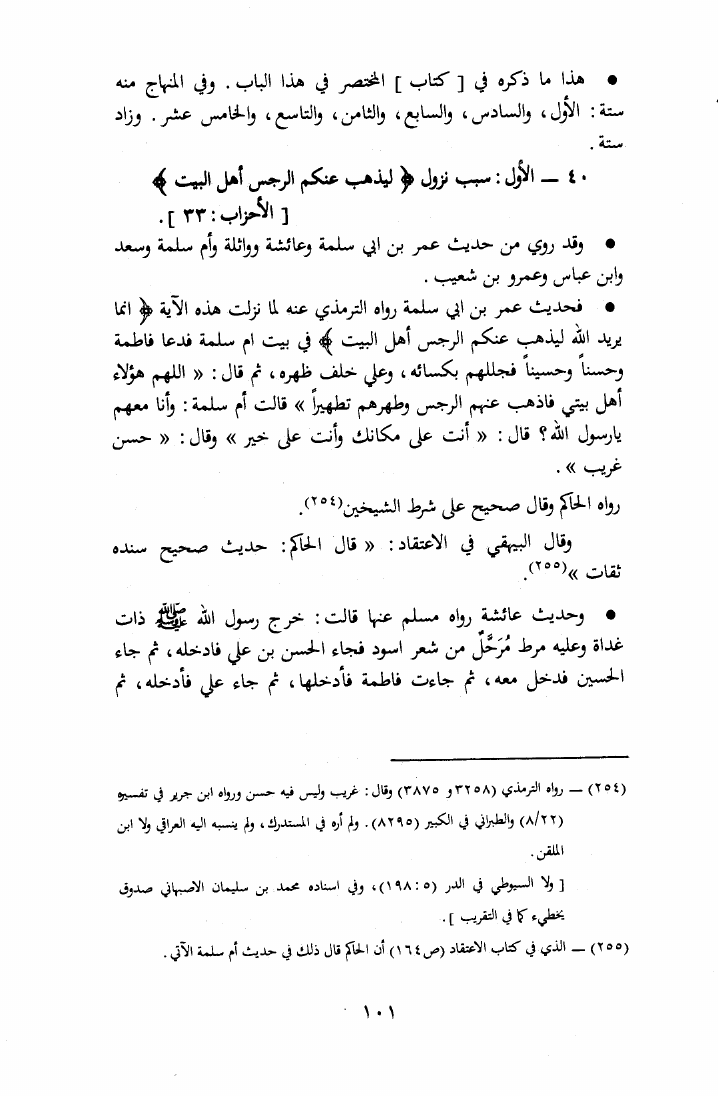 ● هذا ما ذكره في [ كتاب ] المختصر في هذا الباب . وفي المنهاج منه
ستة : الأول ، والسادس ، والسابع ، والثامن ، والتاسع ، والخامس عشر . وزاد
ستة .
٤٠ — الأول : سبب نزول ﴿ ليذهب عنكم الرجس أهل البيت ﴾
[ الأحزاب : ٣٣ ] .
● وقد روي من حديث عمر بن ابي سلمة وعائشة وواثلة وأم سلمة وسعد
وابن عباس وعمرو بن شعيب .
● فحديث عمر بن ابي سلمة رواه الترمذي عنه لما نزلت هذه الآية ﴿ انما
يريد الله ليذهب عنكم الرجس أهل البيت ﴾ في بيت ام سلمة فدعا فاطمة
وحسناً وحسيناً فجللهم بكسائه ، وعلي خلف ظهره ، ثم قال : « اللهم هؤلاء
أهل بيتي فاذهب عنهم الرجس وطهرهم تطهيراً » قالت أم سلمة : وأنا معهم
يارسول الله ؟ قال : « أنت على مكانك وأنت على خير » وقال : « حسن
غريب » .
رواه الحاكم وقال صحيح على شرط الشيخين(٢٥٤).
وقال البيهقي في الاعتقاد : « قال الحاكم : حديث صحيح سنده
ثقات »(٢٥٥).
● وحديث عائشة رواه مسلم عنها قالت : خرج رسول الله ﷺ ذات
غداة وعليه مرط مُرَحَّلٌ من شعر اسود فجاء الحسن بن علي فادخله ، ثم جاء
الحسين فدخل معه ، ثم جاءت فاطمة فأدخلها ، ثم جاء علي فأدخله ، ثم
(٢٥٤) — رواه الترمذي (٣٢٥٨ و ٣٨٧٥) وقال : غريب وليس فيه حسن ورواه ابن جرير في تفسيره
(٨/٢٢) والطبراني في الكبير (٨٢٩٥) . ولم أره في المستدرك ، ولم ينسبه اليه العراقي ولا ابن
الملقن .
[ ولا السيوطي في الدر (٥ : ١٩٨) ، وفي اسناده محمد بن سليمان الاصبهاني صدوق
يخطيء كما في التقريب ] .
(٢٥٥) — الذي في كتاب الاعتقاد (ص ١٦٤) أن الحاكم قال ذلك في حديث أم سلمة الآتي .
١٠١